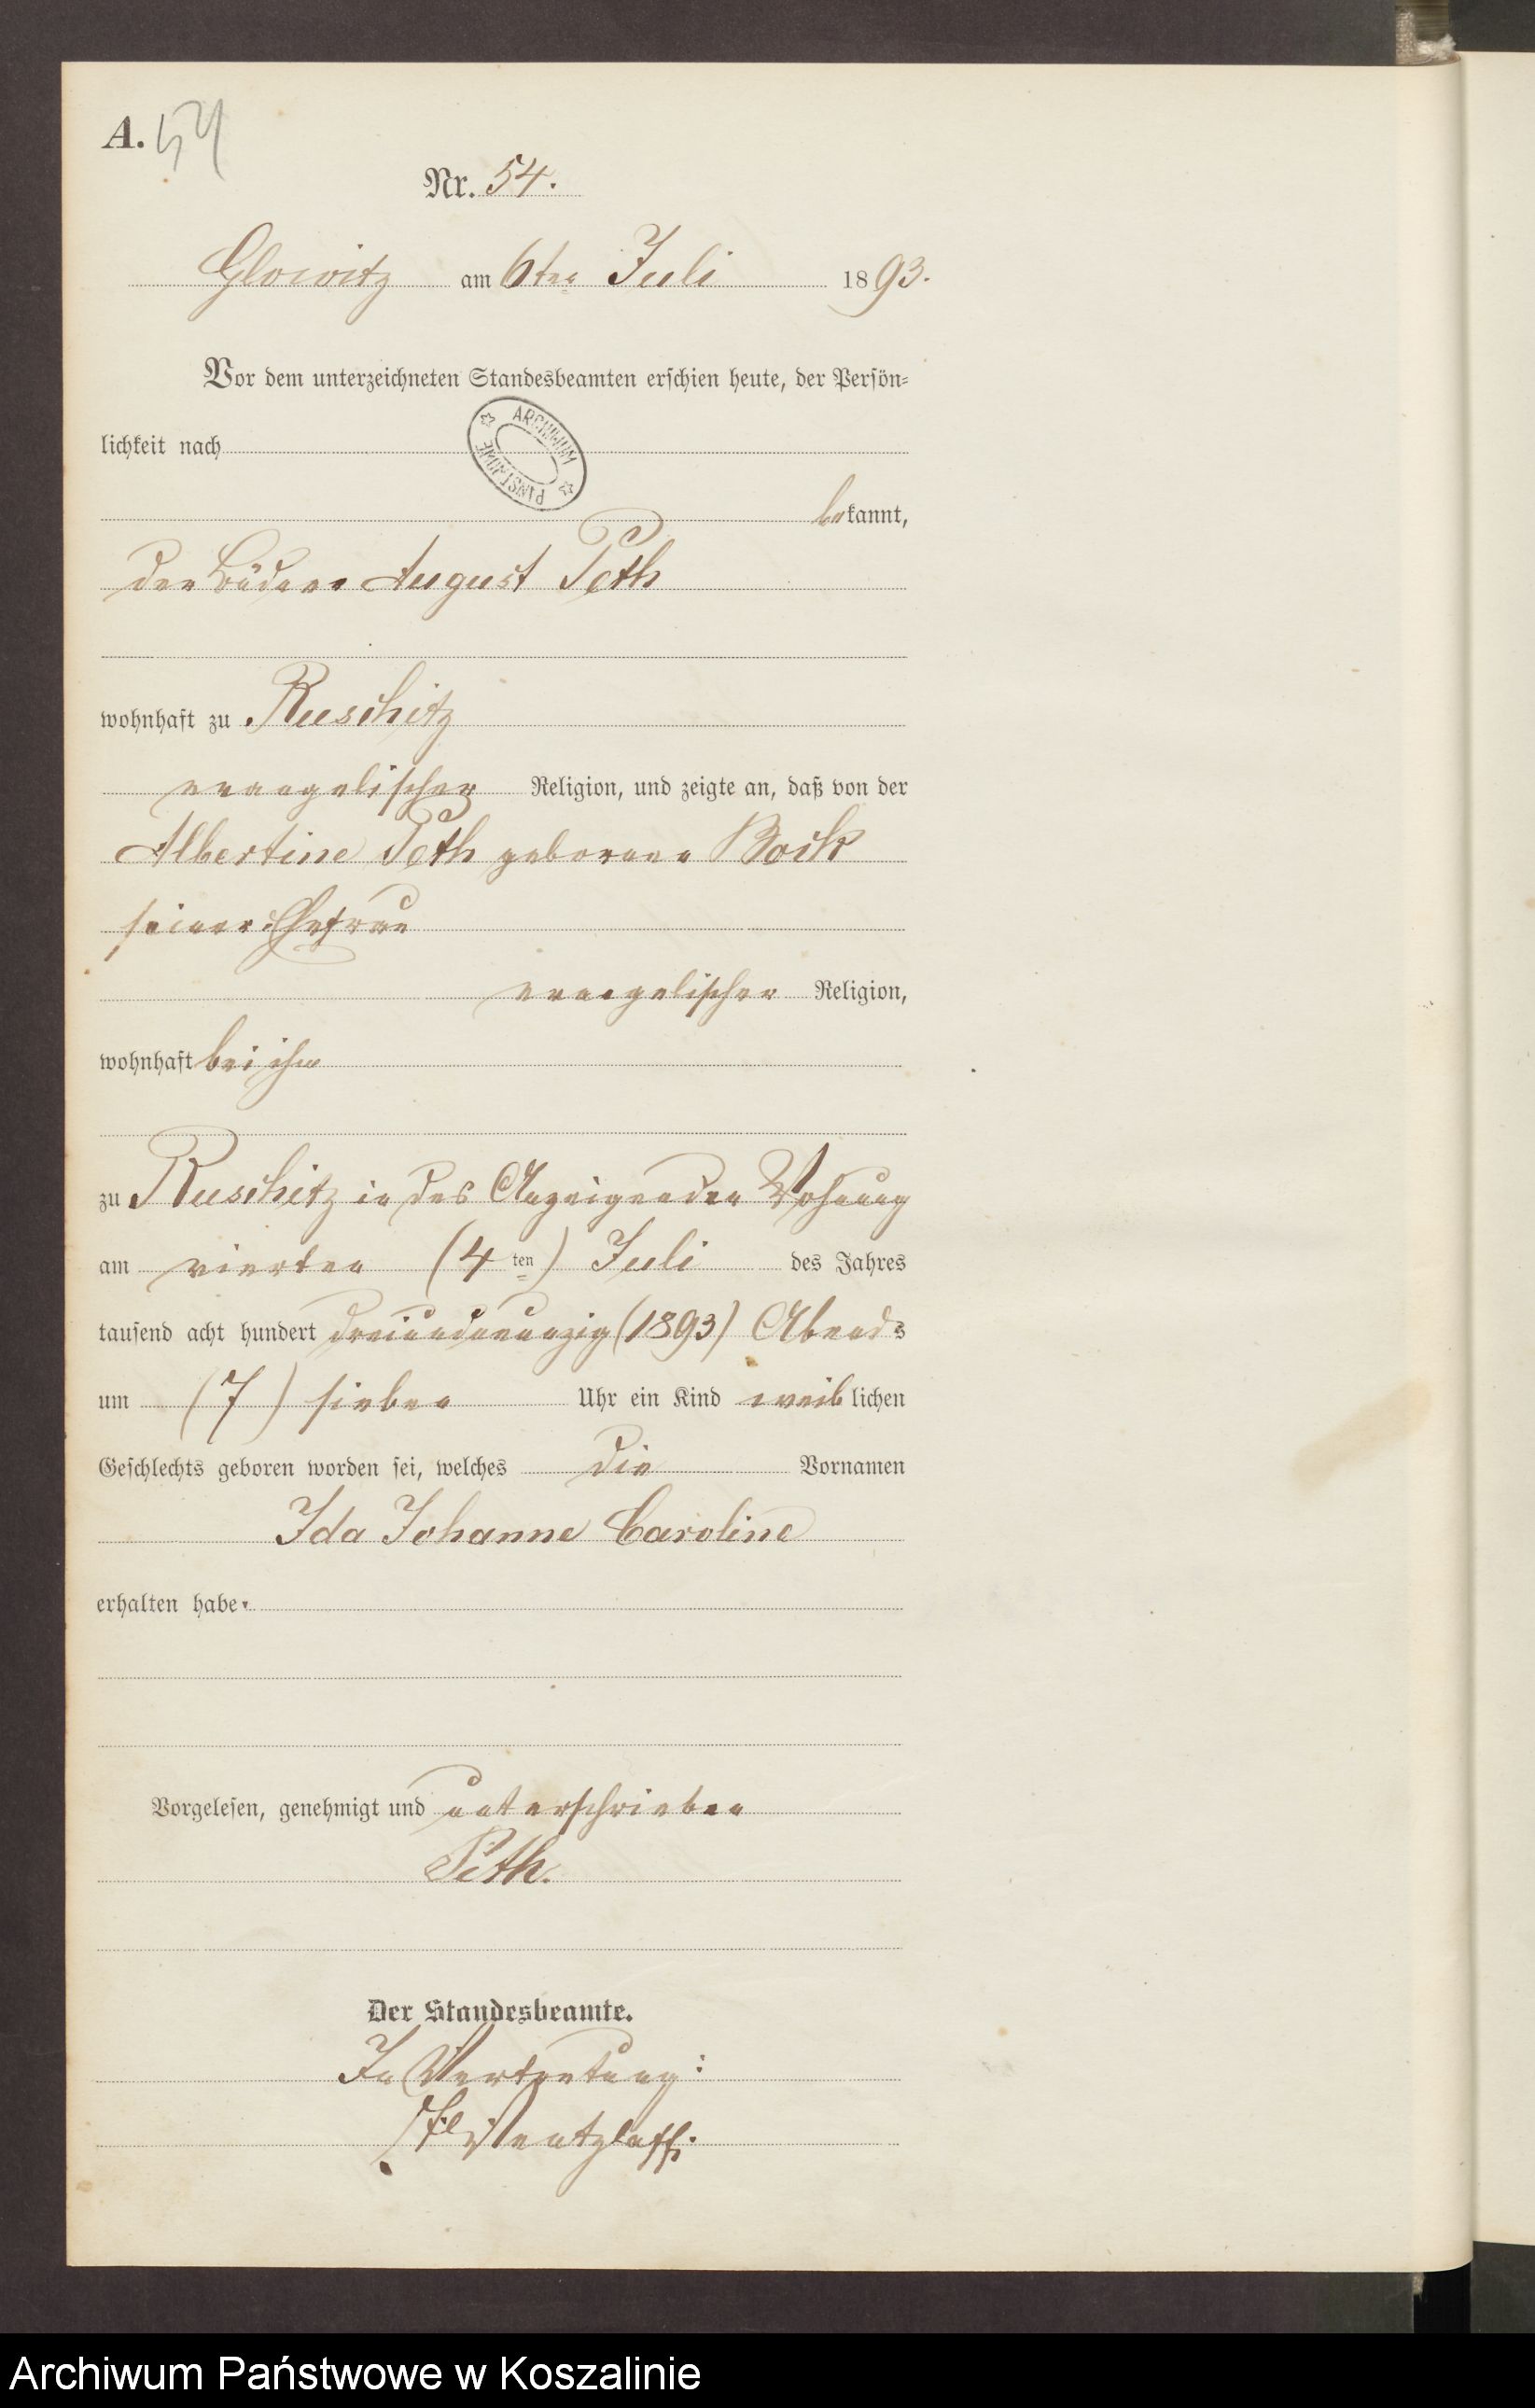 A. 54
Nr. 54.
Glowitz am 6ten Juli 1893.
Vor dem unterzeichneten Standesbeamten erschien heute, der Persön-
lichkeit nach
ARCHIWUM PAŃSTWOWE
bekannt,
der Büdner August Peth
wohnhaft zu Ruschitz
evangelischer Religion, und zeigte an, daß von der
Albertine Peth geborenen Bock
seiner Ehefrau
evangelischer Religion,
wohnhaft bei ihm
zu Ruschitz in des Anzeigenden Wohnung
am vierten (4ten) Juli des Jahres
tausend acht hundert dreiundneunzig (1893) Abends
um (7) sieben Uhr ein Kind weiblichen
Geschlechts geboren worden sei, welches die Vornamen
Ida Johanne Caroline
erhalten habe.
Vorgelesen, genehmigt und unterschrieben
Peth.
Der Standesbeamte.
In Vertretung:
Wentzlaff.
Archiwum Państwowe w Koszalinie